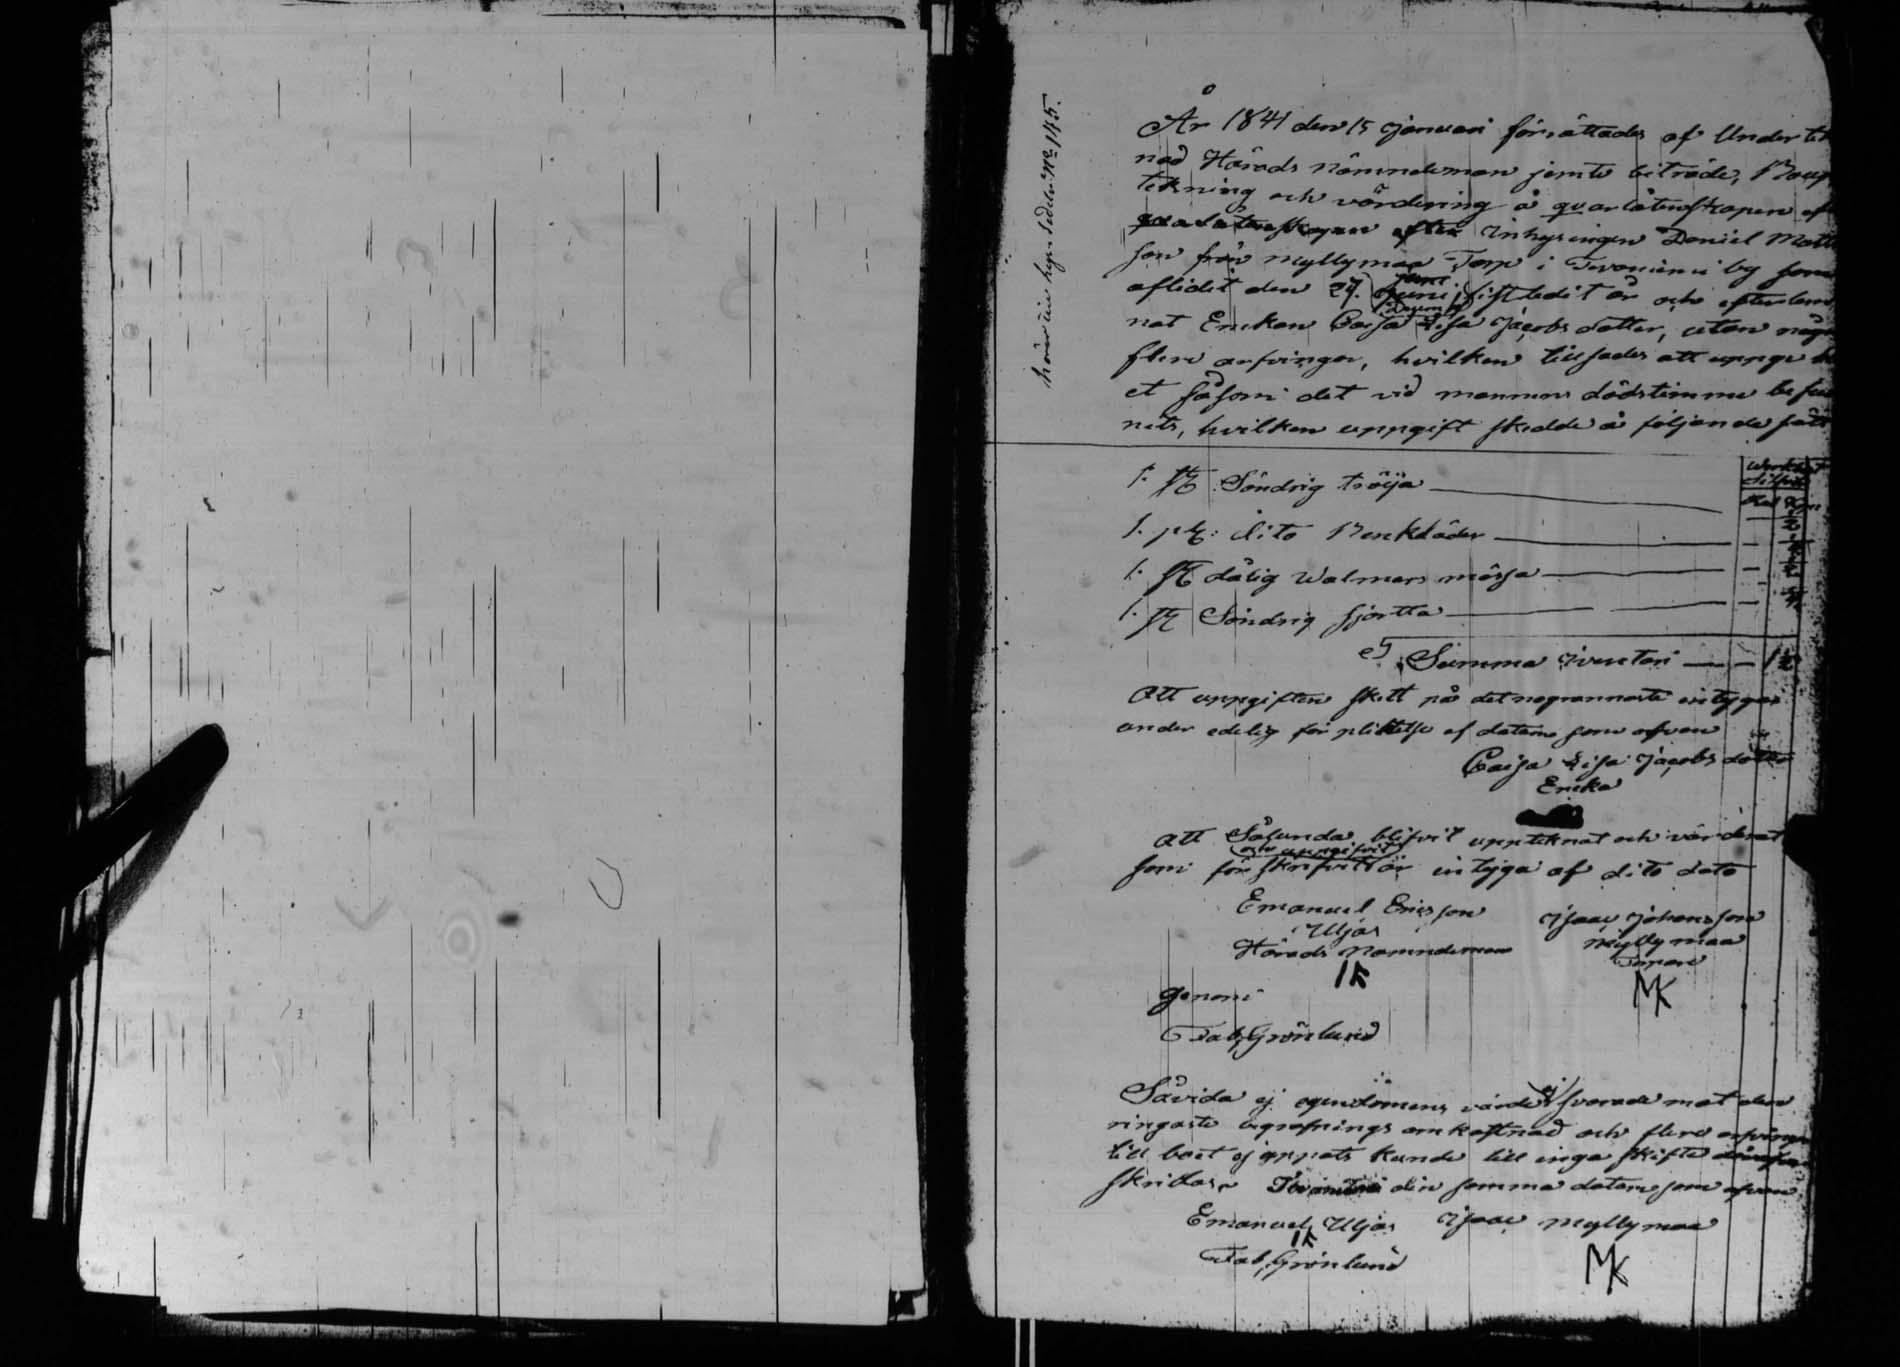 hörer in hyr Sedeln No 145.
År 1841 den 15 Januari förrättades af Under tek
nad Härads Nämndeman jemte biträde, Boup
tekning och värdering å qvarlåtenskapen ef
qvarlåtenskapen efter Inhysingen Daniel Matts
son från Myllymaa Torp i Tervoniemi by som
aflidit den 29. Juni sistledit år och efterlem
nat Enckan Caisa Lisa Jacobs dotter, utan någ
flere arfvingar, hvilken tillsades att uppge bo
et såsom det vid mannens dödstimme befun
nits, hvilken uppgift skedde å följande sätt
Silfver
1. st Söndrig tröija
1. pr: dito Benkläder
1. st dålig Walmars mössa
1. st Söndrig sjortta
Summa Inventari — — 1½
Att uppgiften skett på det nogrannaste intygas
under edelig förpliktelse af datum som ofvan
Caisa Lisa Jacobs dotter
Encka
Att Sålunda blifvit upptecknat och värderat
och uppgifvit
som för skrifvit är intyga af dito dato
Emanuel Ericsson Isaac Johansson
Uljas Myllymaa
Härads Nämndeman Torpare
IK MK
genom
Fab, Grönlund
Såvida ej egendomens värde ej svarade mot den
ringaste begrafnings omkostnad och flere arfvingar
till boet ej gppats kunde till inga skifte
skridas, din samma datum som ofvan
Emanuel Uljas Isaac Myllymaa
IK MK
Fab, Grönlund